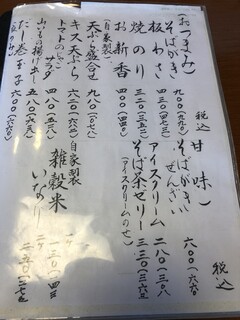 (おつまみ)
税込
そばがき 九〇〇(九九〇)
板わさ
焼のり 三二〇(三五二)
お新香 四〇〇(四四〇)
(自家製)
天ぷら盛合せ 九八〇(一〇七八)
キス天ぷら 六二〇(六八二)
トマトのしそ
サラダ 五八〇(六三八)
山いもの揚げ出し 四八〇(五二八)
だし巻玉子 六〇〇(六六〇)
甘味)
税込
そばがき
ぜんざい 六〇〇(六六〇)
アイスクリーム 二八〇(三〇八)
そば茶ゼリー 三三〇(三六三)
(アイスクリームのせ)
自家製
雑穀米
いなり